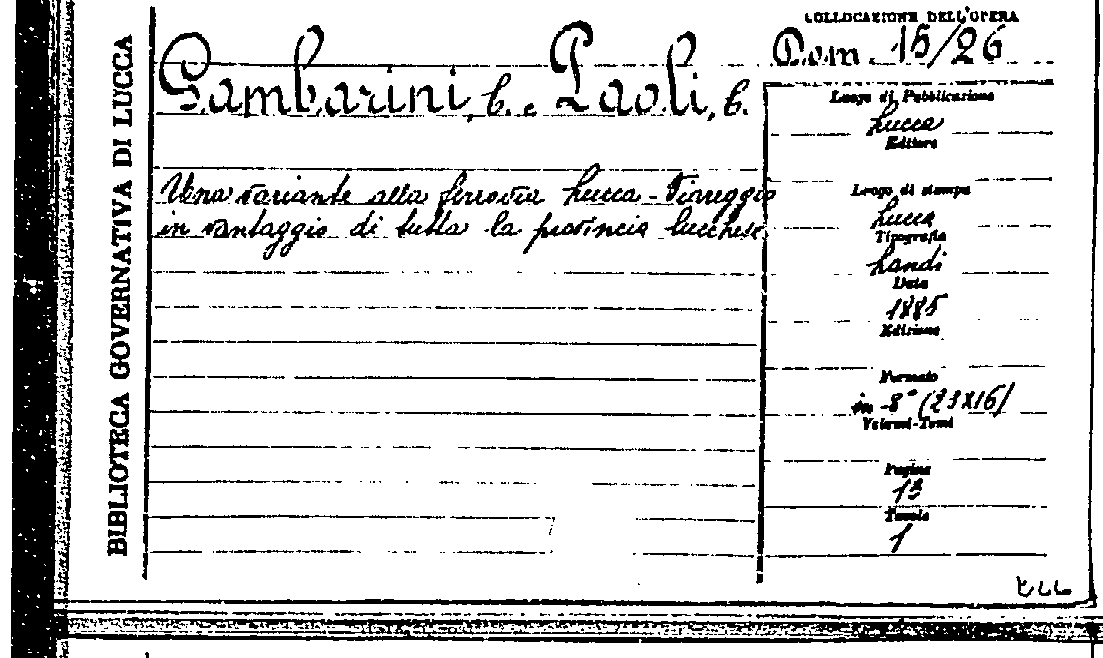 BIBLIOTECA GOVERNATIVA DI LUCCA
COLLOCAZIONE DELL'OPERA
Dom. 15/26
Gambarini, C. e Paoli, C.
Una variante alla ferrovia Lucca-Viareggio
in vantaggio di tutta la provincia lucchese
Luogo di Pubblicazione
Lucca
Editore
Luogo di stampa
Lucca
Tipografia
Landi
Data
1885
Edizione
Formato
in-8° (23x16)
Volumi-Tomi
Pagine
13
Tavole
1